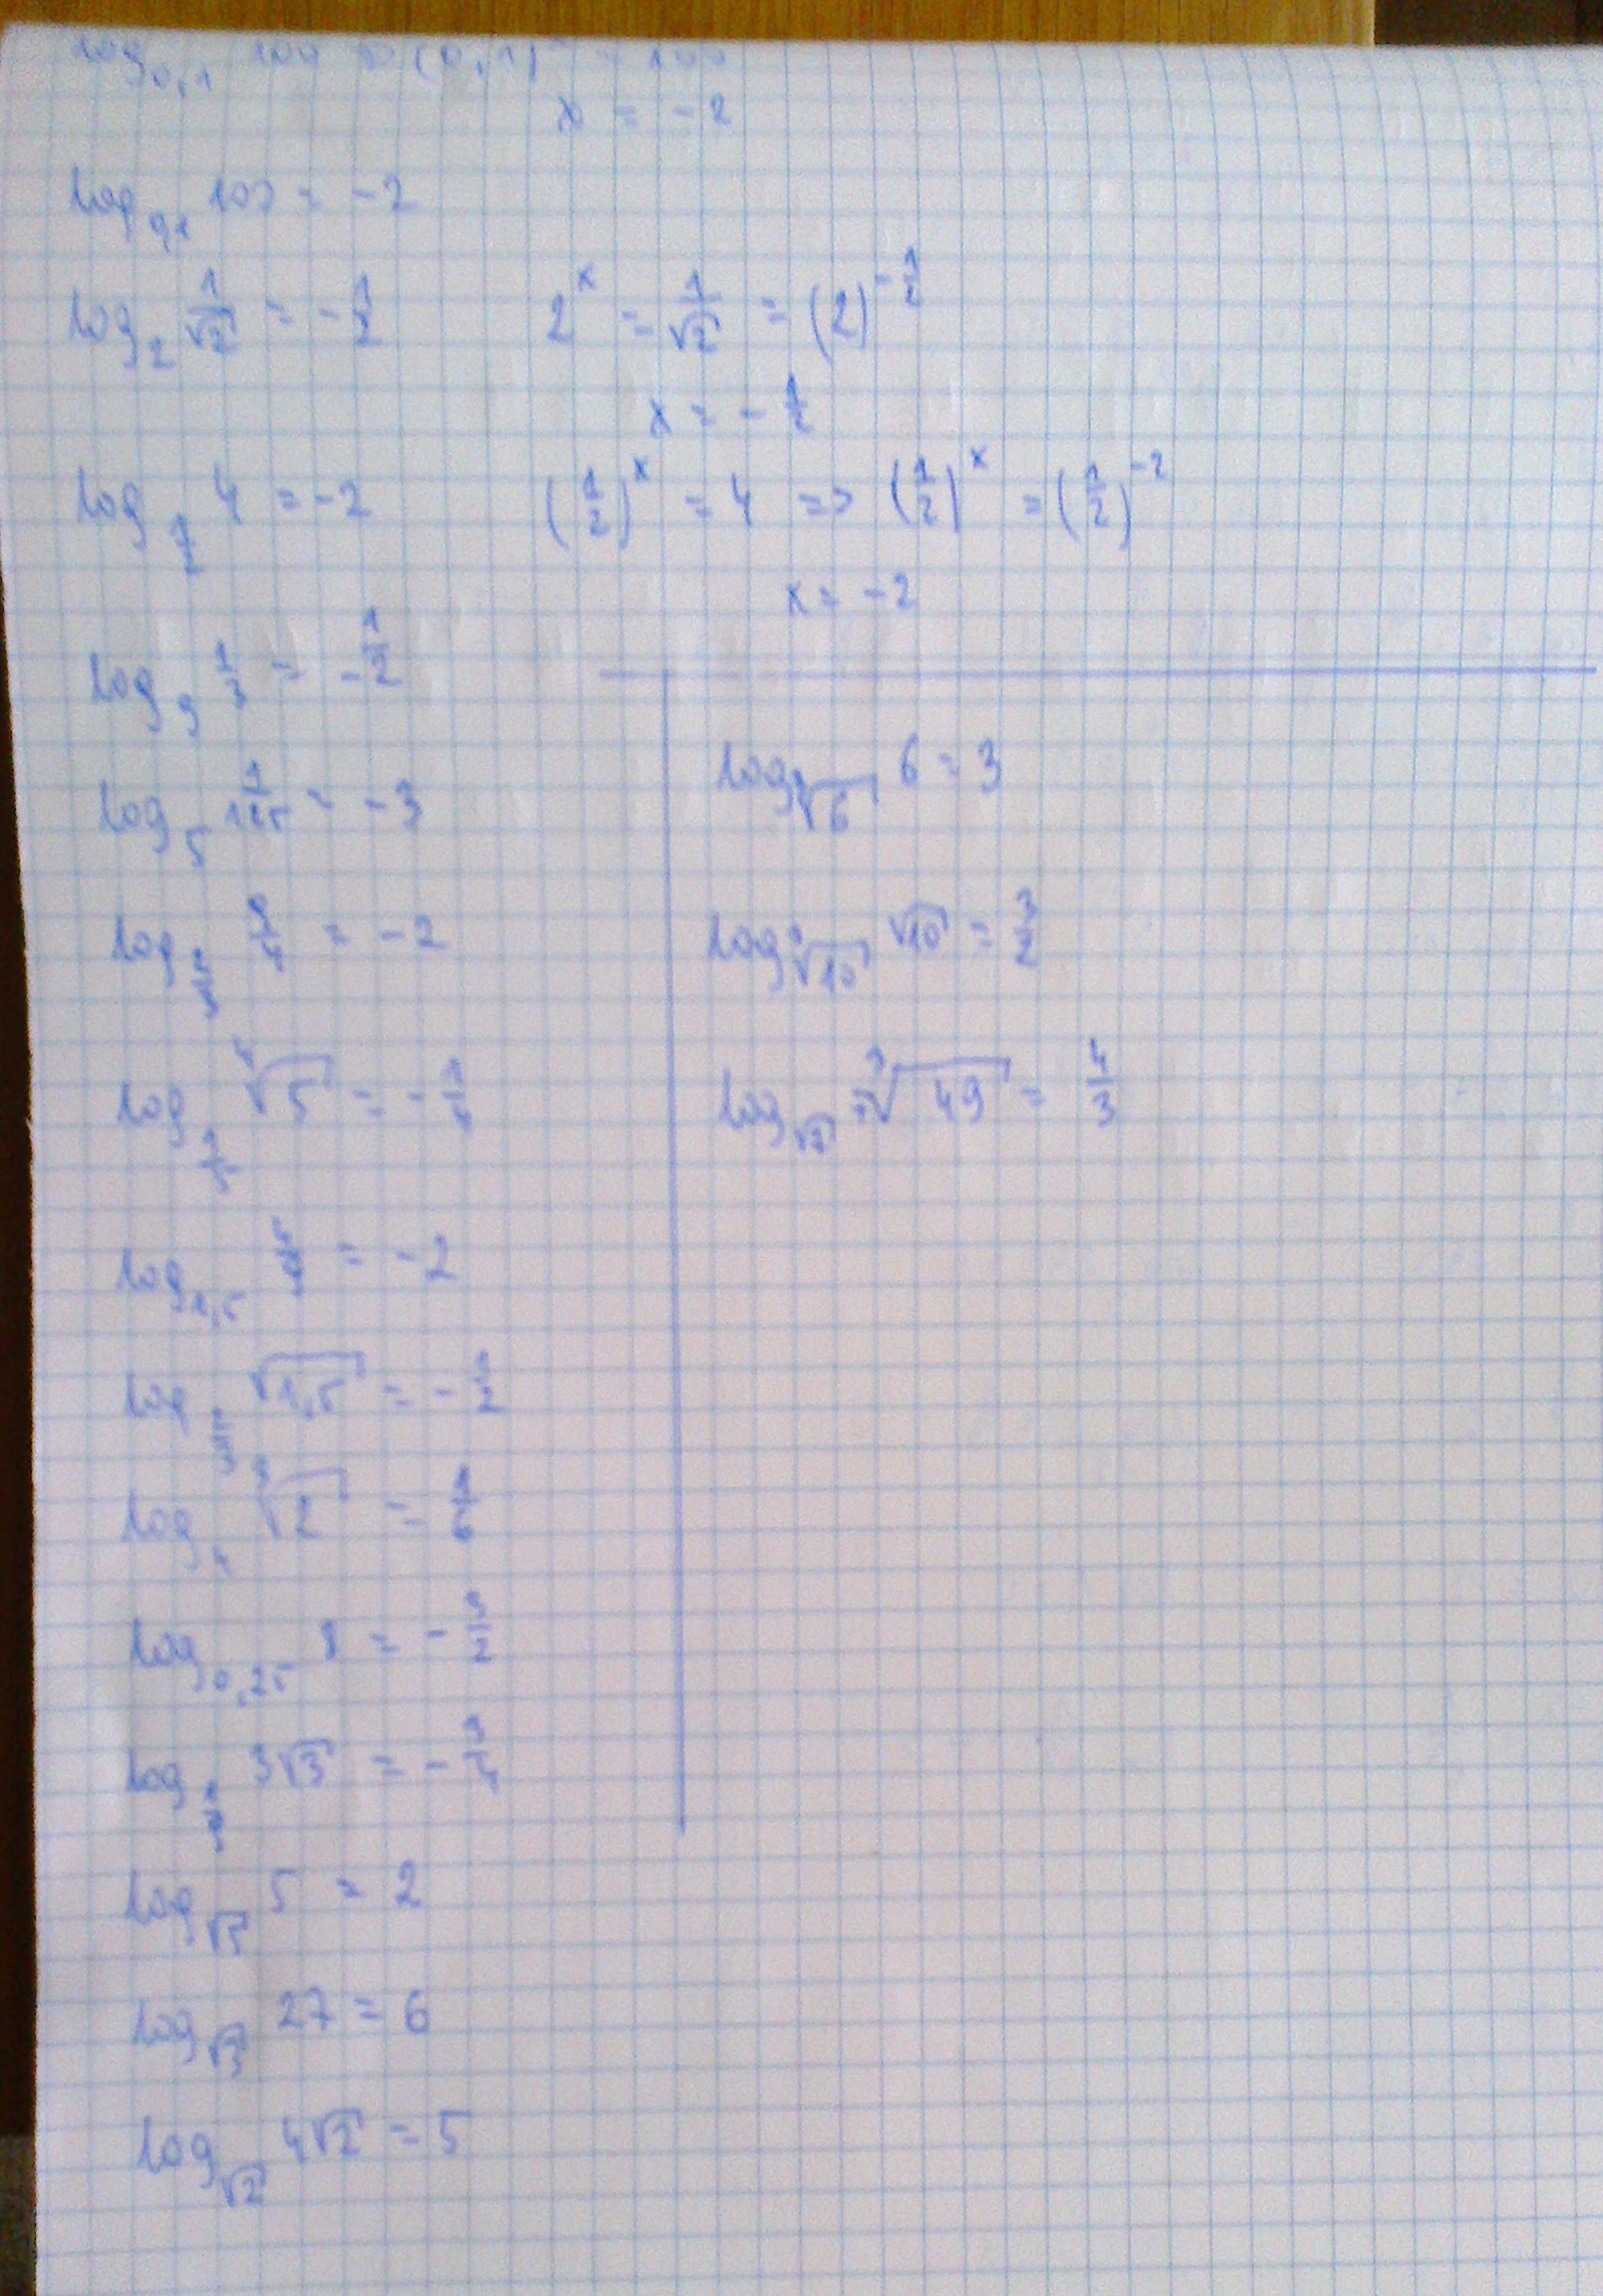 log₀,₁ 100 => (0,1) = 100
x = -2
log₀,₁ 100 = -2
log₂ 1/√2 = -1/2    2ˣ = 1/√2 = (2)^(-1/2)
x = -1/2
log_(1/2) 4 = -2    (1/2)ˣ = 4 => (1/2)ˣ = (1/2)⁻²
x = -2
log₉ 1/3 = -1/2
log₅ 1/125 = -3
log_(2/3) 9/4 = -2
log_(1/5) ⁴√5 = -1/4
log₁,₅ 4/9 = -2
log_(2/3) √1,5 = -1/2
log₄ ³√2 = 1/6
log₀,₂₅ 8 = -3/2
log_(1/9) 3√3 = -3/4
log_√5 5 = 2
log_√3 27 = 6
log_√2 4√2 = 5
log_³√6 6 = 3
log_³√10 √10 = 3/2
log_√7 ³√49 = 4/3